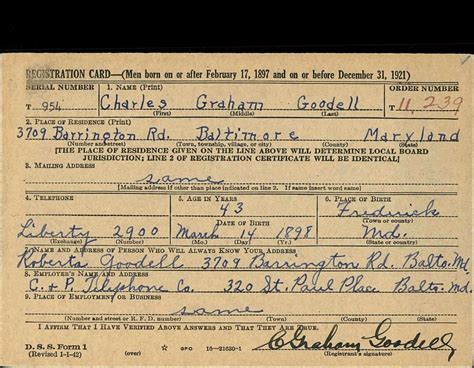 REGISTRATION CARD—(Men born on or after February 17, 1897 and on or before December 31, 1921)
SERIAL NUMBER 1. NAME (Print) ORDER NUMBER
T 954 Charles Graham Goodell T 11,239
(First) (Middle) (Last)
2. PLACE OF RESIDENCE (Print)
3709 Barrington Rd. Baltimore Maryland
(Number and street) (Town, township, village, or city) (County) (State)
[THE PLACE OF RESIDENCE GIVEN ON THE LINE ABOVE WILL DETERMINE LOCAL BOARD
JURISDICTION; LINE 2 OF REGISTRATION CERTIFICATE WILL BE IDENTICAL]
3. MAILING ADDRESS
same
[Mailing address if other than place indicated on line 2. If same insert word same]
4. TELEPHONE 5. AGE IN YEARS 6. PLACE OF BIRTH
43 Frederick
DATE OF BIRTH (Town or county)
Liberty 2900 March 14 1898 Md.
(Exchange) (Number) (Mo.) (Day) (Yr.) (State or country)
7. NAME AND ADDRESS OF PERSON WHO WILL ALWAYS KNOW YOUR ADDRESS
Roberta Goodell 3709 Barrington Rd. Balto. Md.
8. EMPLOYER'S NAME AND ADDRESS
C. & P. Telephone Co. 320 St. Paul Place Balto. Md.
9. PLACE OF EMPLOYMENT OR BUSINESS
same
(Number and street or R. F. D. number) (Town) (County) (State)
I AFFIRM THAT I HAVE VERIFIED ABOVE ANSWERS AND THAT THEY ARE TRUE.
D. S. S. Form 1
(Revised 1-1-42) (over) GPO 16—21630-1 C Graham Goodell
(Registrant's signature)